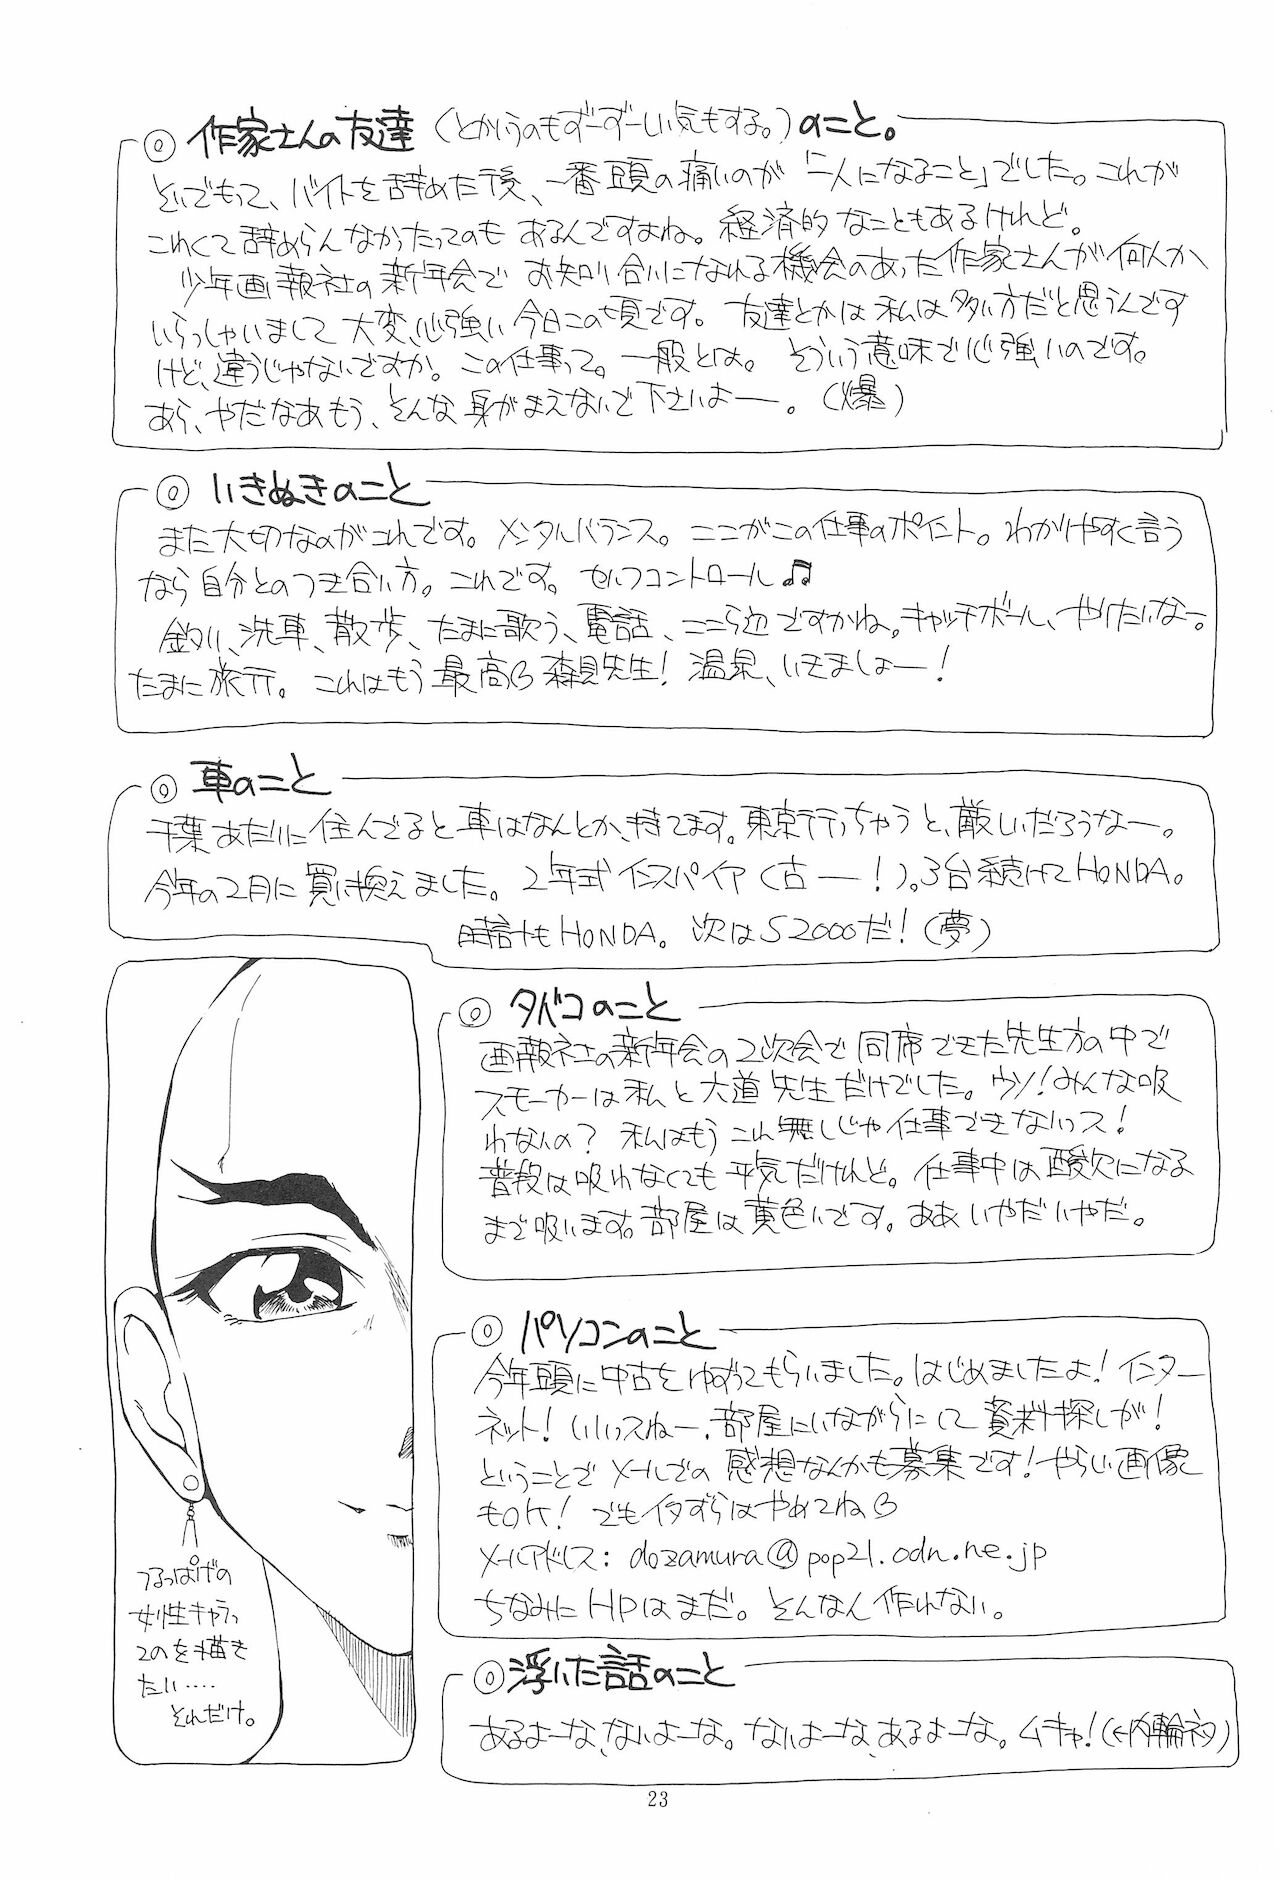 ◎ 作家さんの友達(とかいうのもずーずーしい気もする。)のこと。
といでもって、バイトを辞めた後、一番頭の痛いのが「一人になること」でした。これが
こわくて辞めらんなかったってのもあるんですよね。経済的なこともあるけれど。
少年画報社の新年会でお知り合いになれる機会のあった作家さんが何人か
いらっしゃいまして大変、心強い今日この頃です。友達とかは私は多い方だと思うんです
けど、違うじゃないですか。この仕事って。一般とは。そういう意味で心強いのです。
あら、やだなあもう、そんな身がまえないで下さいよー。(爆)
◎ いきぬきのこと
また大切なのがこれです。メンタルバランス。ここがこの仕事のポイント。わかりやすく言う
なら自分とのつき合い方。これです。セルフコントロール♫
釣り、洗車、散歩、たまに歌う、電話、ここら辺ですかね。キャッチボール、やりたいなー。
たまに旅行。これはもう最高 森見先生!温泉、いきましょー!
◎ 車のこと
千葉あたりに住んでると車はなんとか、持てます。東京行っちゃうと、厳しいだろうなー。
今年の2月に買い換えました。2年式インスパイア(古ー!)。3台続けてHONDA。
時計もHONDA。次はS2000だ!(夢)
◎ タバコのこと
画報社の新年会の2次会で同席できた先生方の中で
スモーカーは私と大道先生だけでした。ウソ!みんな吸
わないの?私はもうこれ無しじゃ仕事できないっス!
普段は吸わなくても平気だけれど。仕事中は酸欠になる
まで吸います。部屋は黄色いです。ああいやだいやだ。
◎ パソコンのこと
今年頭に中古をゆずってもらいました。はじめましたよ!インター
ネット!いいっスねー、部屋にいながらにして資料探しが!
ということでメールでの感想なんかも募集です!やらしい画像
もOK!でもイタずらはやめてね
メールアドレス:dozamura@pop21.odn.ne.jp
ちなみにHPはまだ。そんなん作れない。
◎ 浮いた話のこと
あるよーな、ないよーな。ないよーな、あるよーな。ムキャ!(←内輪ネタ)
つるっぱげの
女性キャラっ
てのを描き
たい‥‥
それだけ。
23